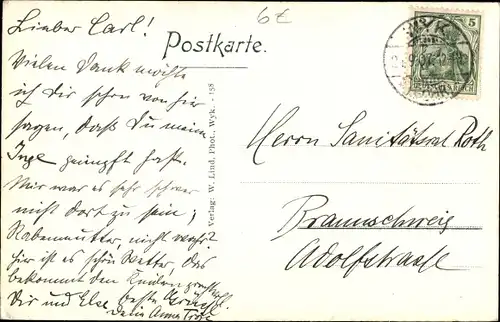 6£
Lieber Carl!
Postkarte.
WYK
5
Vielen Dank möchte
ich Dir schon von hier
sagen, daß Du meine
Inge geimpft hast.
Mir war es sehr schwer
nicht dort zu sein;
Rabenmutter, nicht wahr?
hier ist es schön Wetter, das
bekommt den
Dir und Else beste Grüße
Deine Anna
Verlag: W. Lind, Phot., Wyk. - 158
Herrn Sanitätsrat Roth
Braunschweig
Adolfstrasse